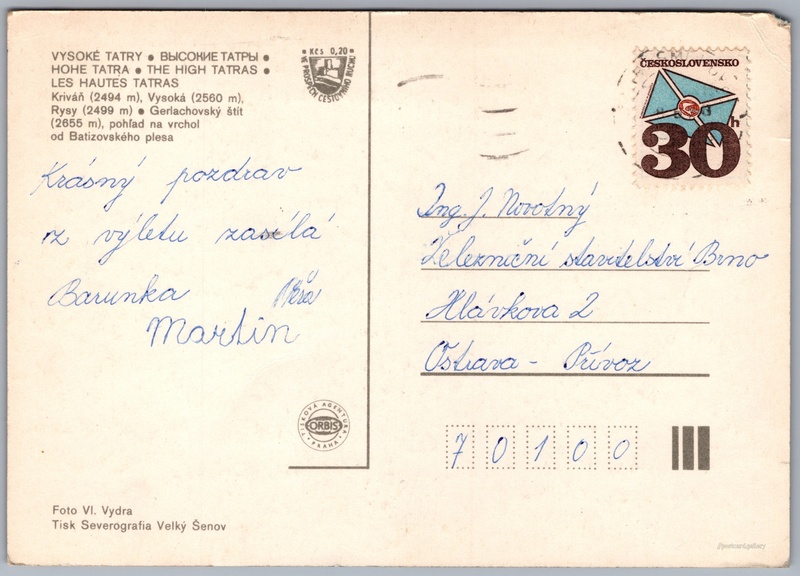 VYSOKÉ TATRY ● ВЫСОКИЕ ТАТРЫ ●
HOHE TATRA ● THE HIGH TATRAS ●
LES HAUTES TATRAS
Kriváň (2494 m), Vysoká (2560 m),
Rysy (2499 m) ● Gerlachovský štít
(2655 m), pohľad na vrchol
od Batizovského plesa
Kčs 0,20
VE PROSPĚCH CESTOVNÍHO RUCHU
Krásný pozdrav
z výletu zasílá
Barunka Věra
Martin
TISKOVÁ AGENTURA
ORBIS
PRAHA
Foto Vl. Vydra
Tisk Severografia Velký Šenov
ČESKOSLOVENSKO
30 h
Ing. J. Novotný
Železniční stavitelství Brno
Hlávkova 2
Ostrava - Přívoz
70100